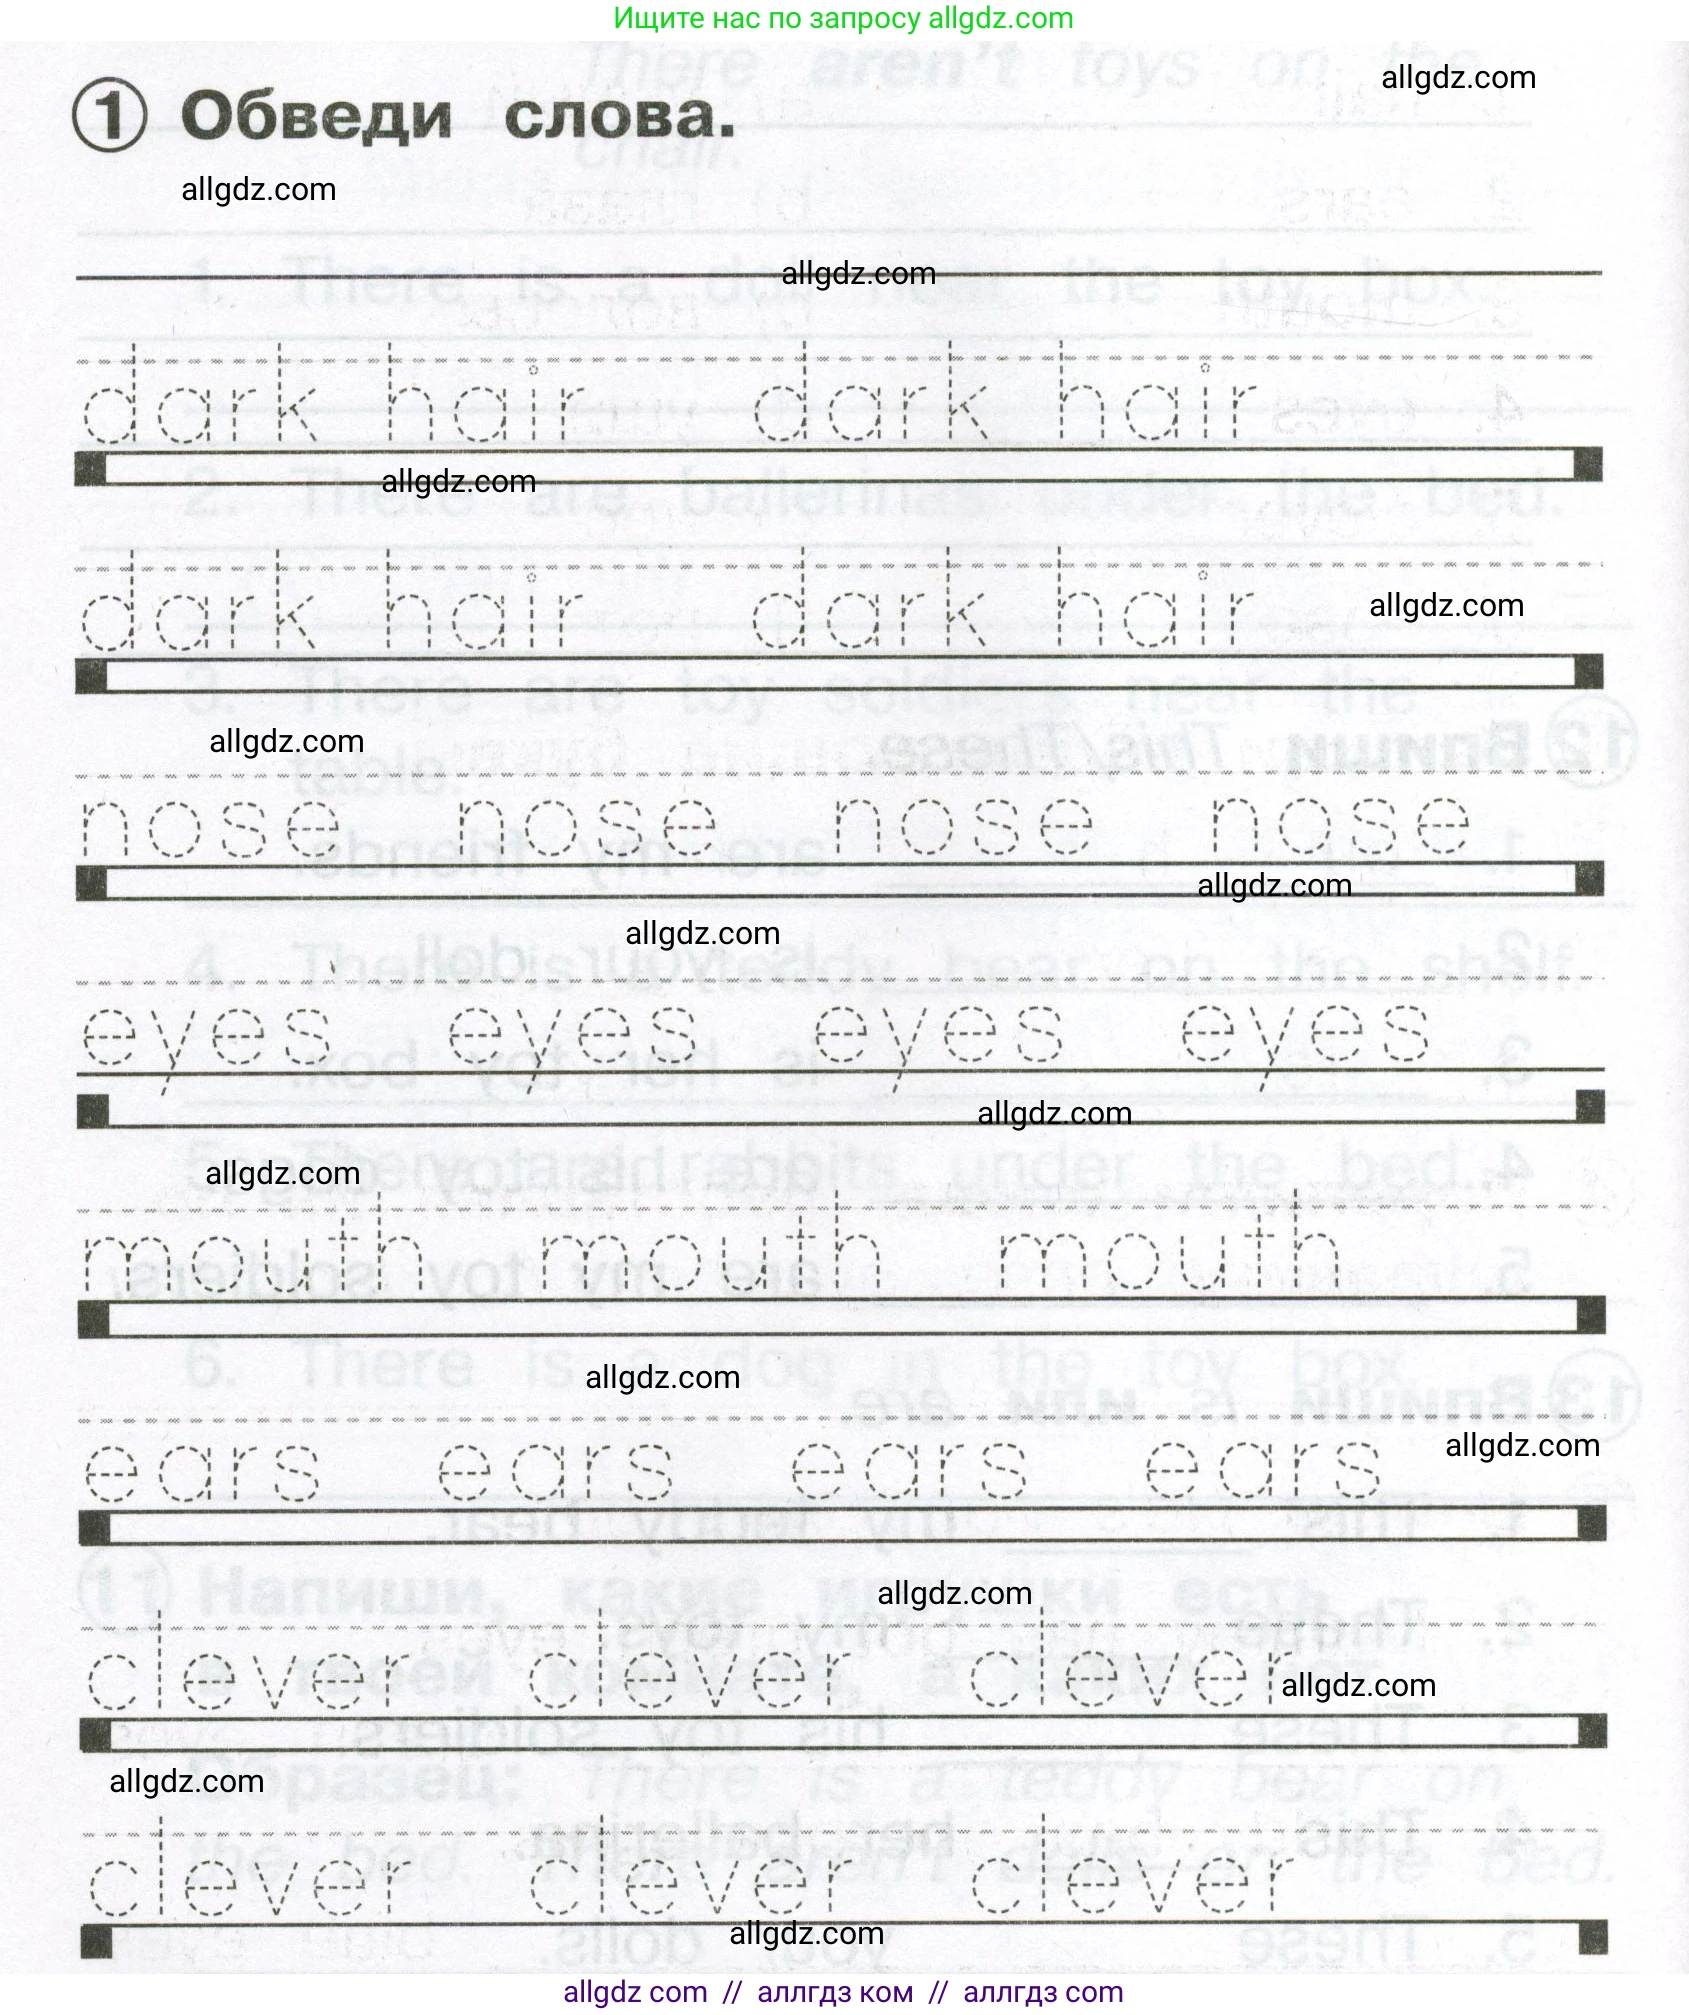 Ищите нас по запросу allgdz.com
allgdz.com
1 Обведи слова.
allgdz.com
allgdz.com
dark hair dark hair
allgdz.com
dark hair dark hair
allgdz.com
allgdz.com
nose nose nose nose
allgdz.com
allgdz.com
eyes eyes eyes eyes
allgdz.com
allgdz.com
mouth mouth mouth
allgdz.com
ears ears ears ears
allgdz.com
allgdz.com
clever clever clever
allgdz.com
allgdz.com
clever clever clever
allgdz.com
allgdz com // аллгдз ком // аллгдз com